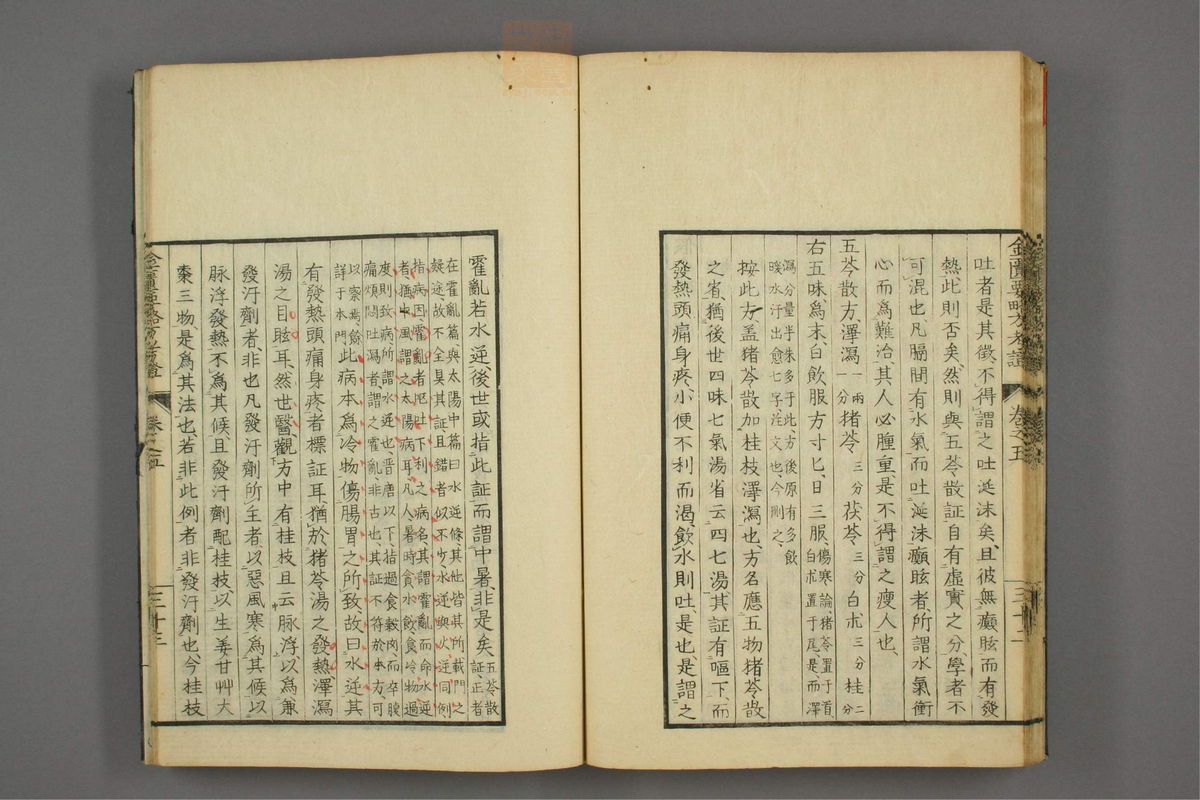 吐者是其徵、不得謂之吐涎沫矣、且彼無癲眩而有發
熱、此則否矣、然則與五苓散証自有虛實之分、學者不
可混也、凡膈間有水氣而吐涎沫癲眩者、所謂水氣衝
心而爲難治、其人必腫重是不得謂之瘦人也、
五苓散方、澤瀉一兩一分豬苓三分茯苓、三分白朮三分桂二分
右五味、爲末、白飲服方寸匕、日三服、傷寒論豬苓置于首、白朮置于尾是、而澤
瀉分量半朱多于此、方後原有多飲
暖水汗出愈七字注文也、今刪之、
按此方、盖豬苓散加桂枝澤瀉也、方名應五物豬苓散
之省、猶後世四味七氣湯省云四七湯、其証有嘔下、而
發熱頭痛身疼、小便不利而渴、飲水則吐、是也、是謂之
霍亂若水逆、後世或指此証而謂中暑、非是矣、五苓散証、正者
在霍亂篇與太陽中篇曰水逆條其他皆其所載門之
疑途、故不全具其証且錯者似不少、水逆與火逆同例、
指病因霍亂者、卮吐下利之病名、其謂霍亂而命水逆
者、猶中風謂之太陽病耳、凡人暑時食水飲食冷物過
度則致病所謂水逆也、晉唐以下指過食穀肉、而卒腹
痛煩悶吐瀉者、謂之霍亂非古也、其証不符於本方、可
以察焉、餘詳于本門、此病本爲冷物傷腸胃之所致、故曰水逆其
有發熱頭痛身疼者標証耳、猶於豬苓湯之發熱、澤瀉
湯之目眩耳、然世醫觀方中有桂枝且云脉浮、以爲兼
發汗劑者、非也凡發汗劑所主者、以惡風寒爲其候、以
脉浮發熱不爲其候、且發汗劑配桂枝、以生姜甘艸大
棗三物、是爲其法也、若非此例者非發汗劑也、今桂枝
金匱要略方考證
卷之五
三十二
金匱要略方考證
卷之五
三十三